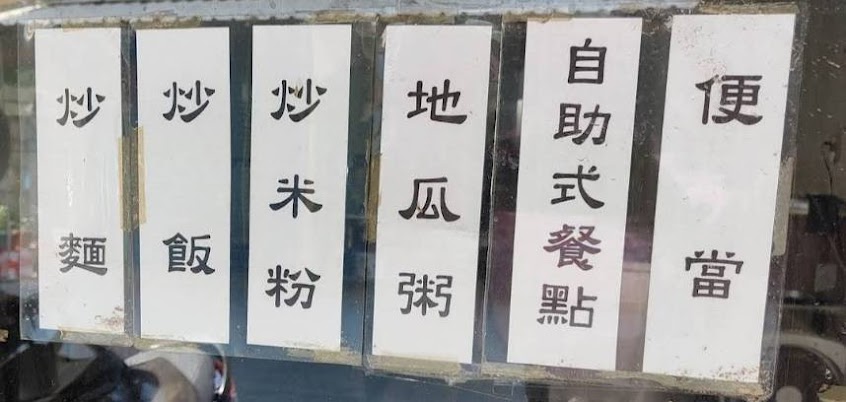 便當
自助式餐點
地瓜粥
炒米粉
炒飯
炒麵